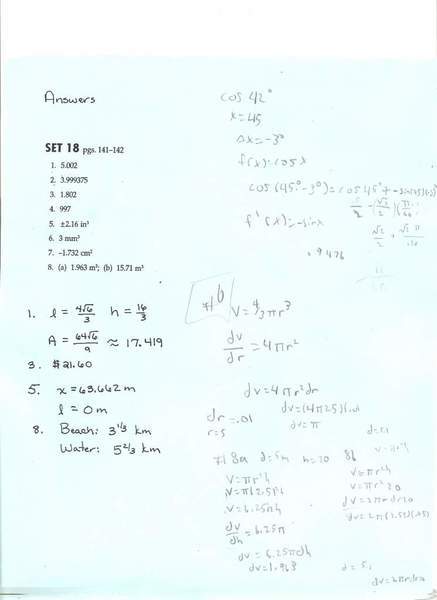 Answers
SET 18 pgs. 141–142
1. 5.002
2. 3.999375
3. 1.802
4. 997
5. ±2.16 in³
6. 3 mm³
7. –1.732 cm²
8. (a) 1.963 m³; (b) 15.71 m³
1. l = 4√6/3 h = 16/3
A = 64√6/9 ≈ 17.419
3. $21.60
5. x = 63.662 m
l = 0 m
8. Beach: 3 1/3 km
Water: 5 2/3 km
cos 42°
x = 45
Δx = -3°
f(x) = cosx
cos(45°-3°) = cos 45° + -sin(45)(-3)°
f'(x) = -sinx
#6
V = 4/3 πr³
dv/dr = 4πr²
dv = 4πr²dr
dr = .01 dv = (4π25)(.01)
r = 5 dv = π
#8a d = 5m h = 20 8b
V = πr²h
V = π(2.5)²h
V = 6.25πh
dv/dh = 6.25π
dv = 6.25πdh
dv = 1.963
V = πr²h
V = πr²20